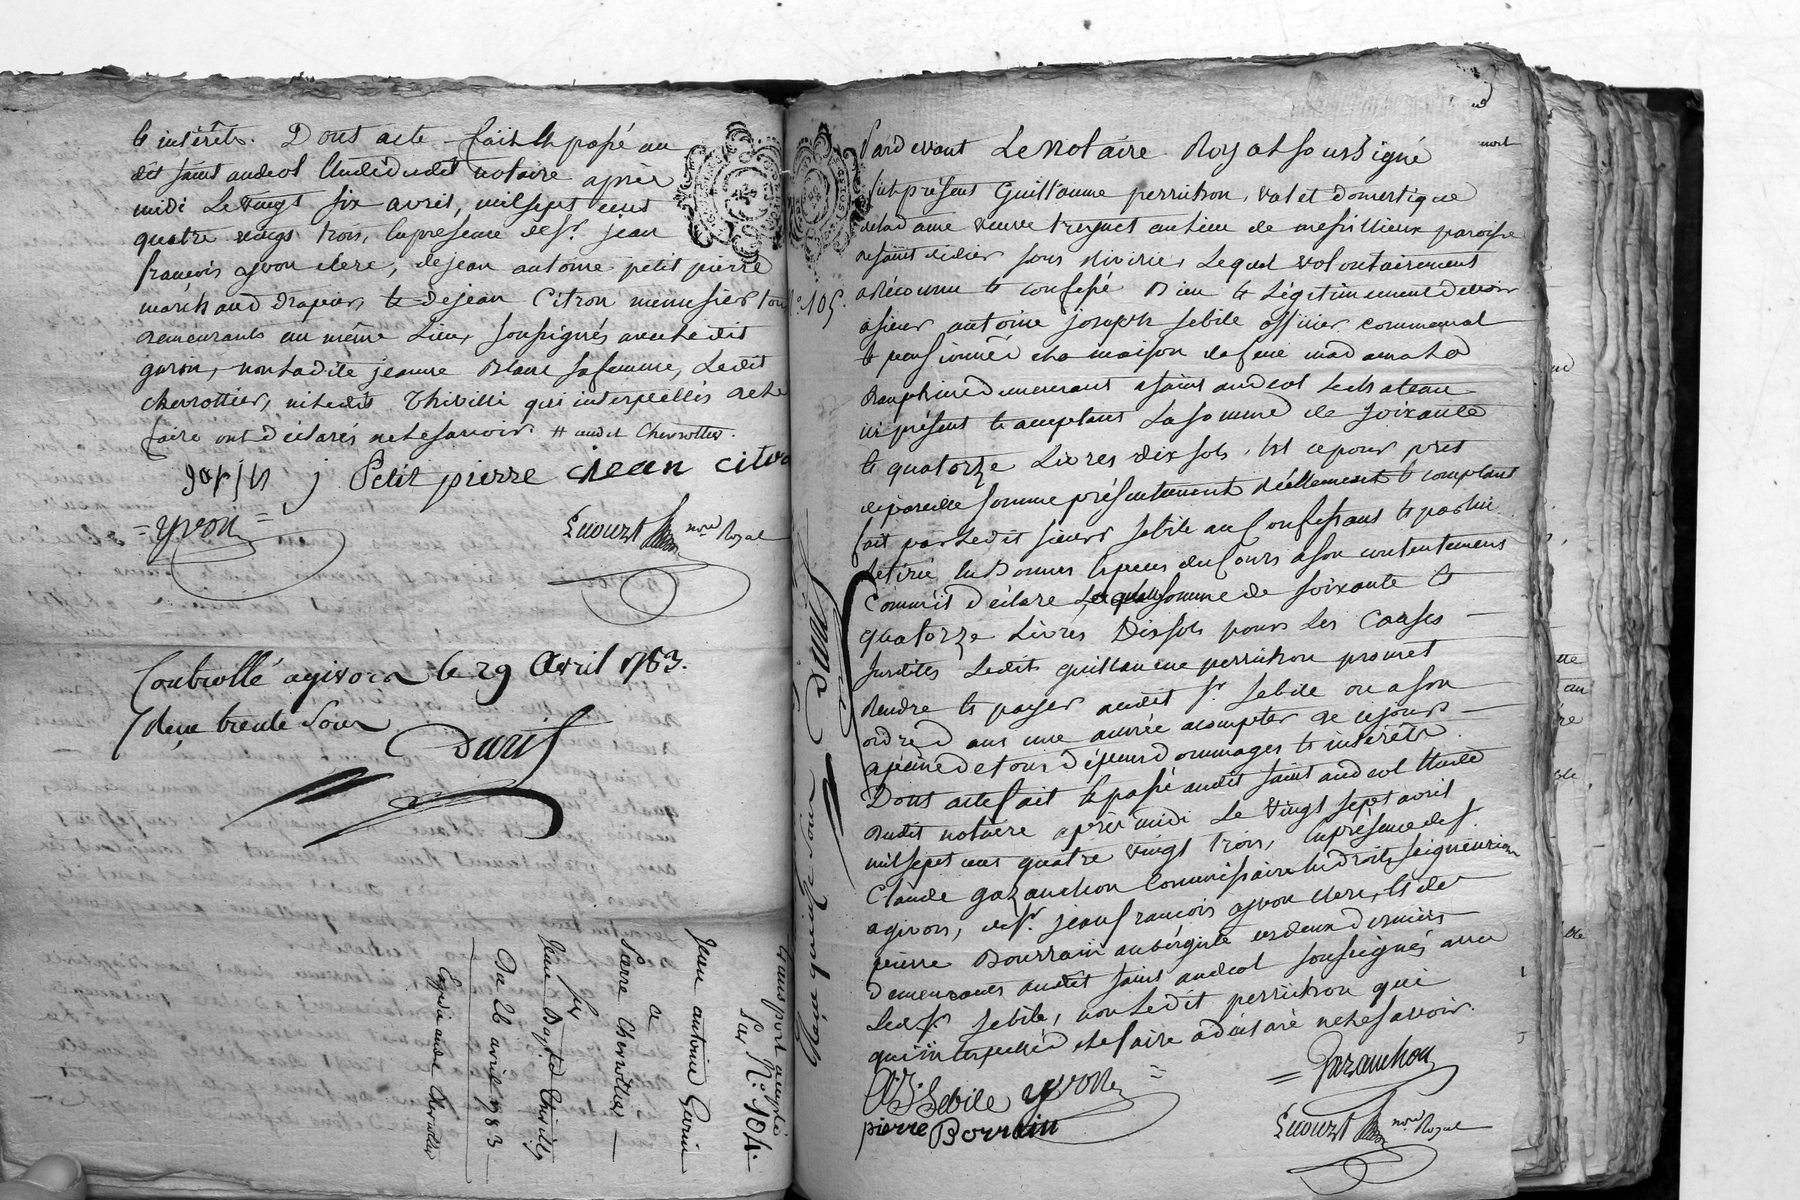 & intérêts. Dont acte fait & passé au
dit saint andeol Etude dudit notaire après
midi Le vingt six avril, mil sept cens
quatre vingt trois, En presence de sr. jean
françois yvon clerc, de jean antoine petit pierre
marchand drapier, & de jean Citron menuisier tous
demeurants au même Lieu, soussignés avec ledit
gurin, non ladite jeanne Blanc sa femme, Ledit
cherrottier, ni ledit Thivilli qui interpellés de le
faire ont déclarés ne le savoir # audit Cherrottier.
j petit pierre jean citron
= yvon =
not.re Royal
Controllé a givors le 29 Avril 1783.
Reçu trente sous
Duris
transport accepté
Sur N.o 104.
Jean antoine Gurin
a
Pierre Cherottier
sur
Jean Bapt.te Thivilly
Du 26 avril 1783
Expedié audit Cherottier
Reçu quinze sous Duris
Pardevant Le Notaire Royal soussigné
fut présent Guillaume perrichon, valet domestique
de la dame veuve truynet au lieu de messillieux paroisse
de saint didier sous riverie, Lequel volontairement
N.o 105.
a reconnu & confessé Bien & Légitimement devoir
a sieur antoine joseph sebile officier commensal
& pensionné de la maison de feue madame La
Dauphine demeurant a saint andeol Le chateau
ici présent & acceptant La somme de soixante
& quatorze Livres dix sols, Et ce pour pret
de pareille somme présentement réellement & comptant
fait par Ledit sieur sebile au Confessant & par lui
retiré En Bonnes Especes du Cours a son contentement
Comme il déclare, Laquelle somme de soixante &
quatorze Livres Dix sols pour Les Causes
susdites Ledit guillaume perrichon promet
Rendre & payer audit sr. sebile ou a son
ordre dans une année a compter de ce jour
a peine de tous dépens dommages & intérêts.
Dont acte fait & passé audit saint andeol Etude
dudit notaire après midi Le Vingt sept avril
mil sept cens quatre vingt trois, En présence de sr.
Claude gazanchon Commissaire En Droits seigneuriaux
a givors, de sr. jean françois yvon clerc, & de
pierre Bourrain aubergiste ces deux derniers
demeurants audit saint andeol soussignés avec
Ledit sr. sebile, non Ledit perrichon qui
qui interpellé de le faire a déclaré ne le savoir.
A: J: Sebile yvon = = Gazanchon
pierre Borrain
not.re Royal